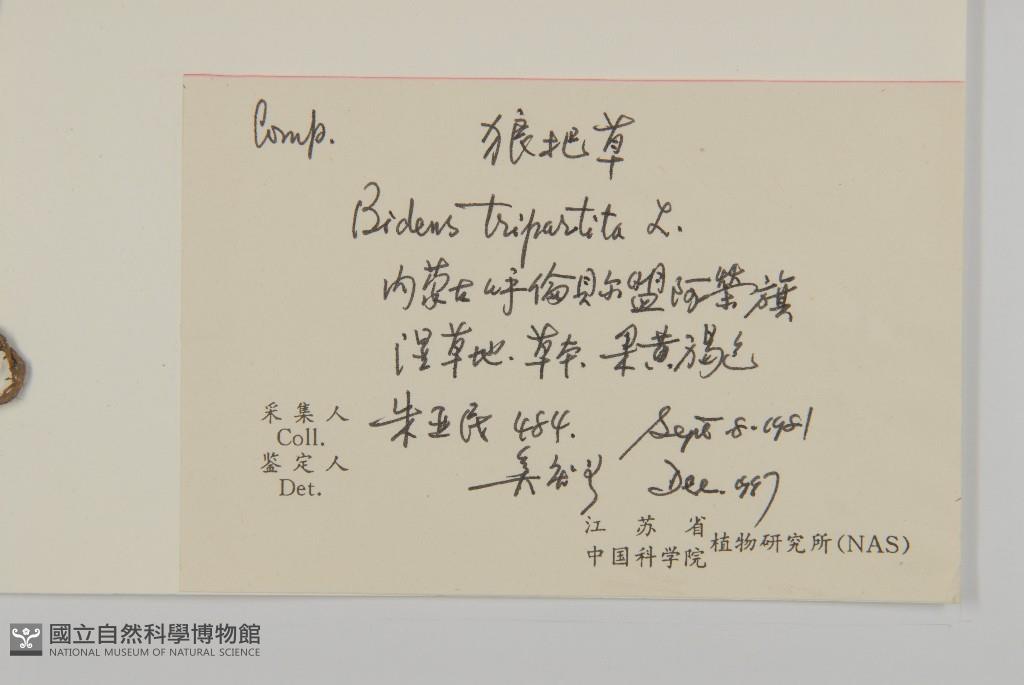 Comp. 狼把草
Bidens tripartita L.
内蒙古呼倫貝尔盟阿榮旗
湿草地.草本.果黄褐色
采集人 朱亚民 484. Sept 8.1981
Coll.
鉴定人 Dec.1997
Det.
江苏省
中国科学院 植物研究所(NAS)
國立自然科學博物館
NATIONAL MUSEUM OF NATURAL SCIENCE